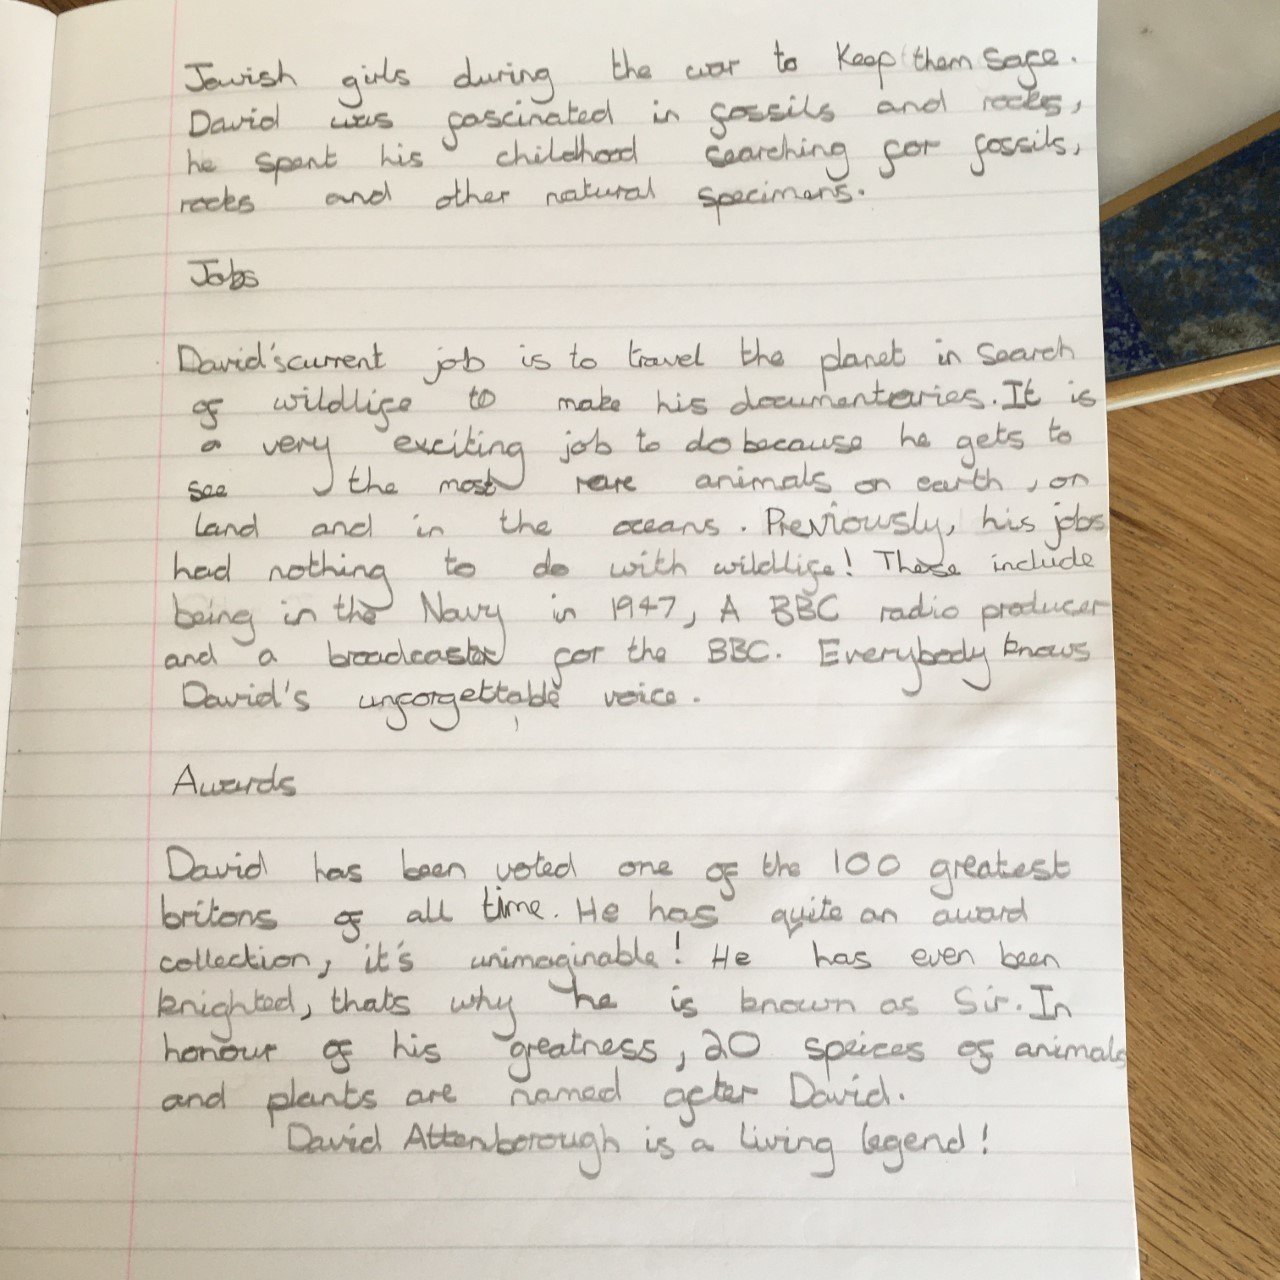 Jewish girls during the war to Keep them safe.
David was fascinated in fossils and rocks,
he spent his childhood searching for fossils,
rocks and other natural specimens.
Jobs
David's current job is to travel the planet in search
of wildlife to make his documentaries. It is
a very exciting job to do because he gets to
see the most rare animals on earth, on
land and in the oceans. Previously, his jobs
had nothing to do with wildlife! These include
being in the Navy in 1947, A BBC radio producer
and a broadcaster for the BBC. Everybody knows
David's unforgettable voice.
Awards
David has been voted one of the 100 greatest
britons of all time. He has quite an award
collection, it's unimaginable! He has even been
knighted, thats why he is known as Sir. In
honour of his greatness, 20 speices of animals
and plants are named after David.
David Attenborough is a living legend!